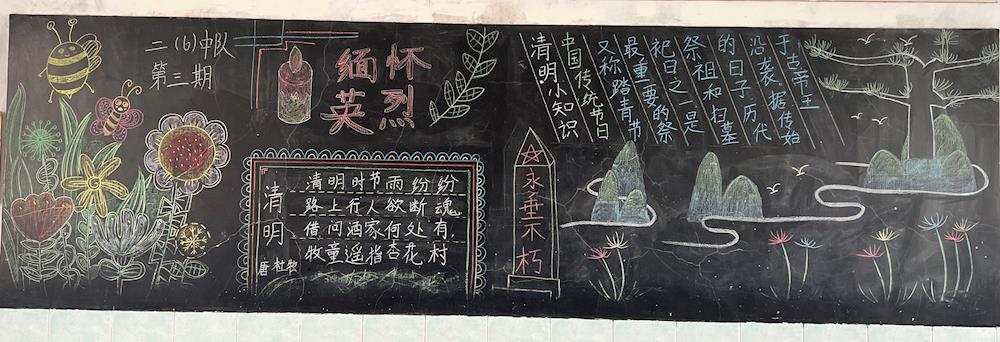 二(6)中队
第三期
缅怀
英烈
清明
清明时节雨纷纷
路上行人欲断魂
借问酒家何处有,
牧童遥指杏花村
唐 杜牧
永垂不朽
清明小知识
中国传统节日
又称踏青节
最重要的祭
祀日之一是
祭祖和扫墓
的日子.历代
沿袭.据传始
于古帝王